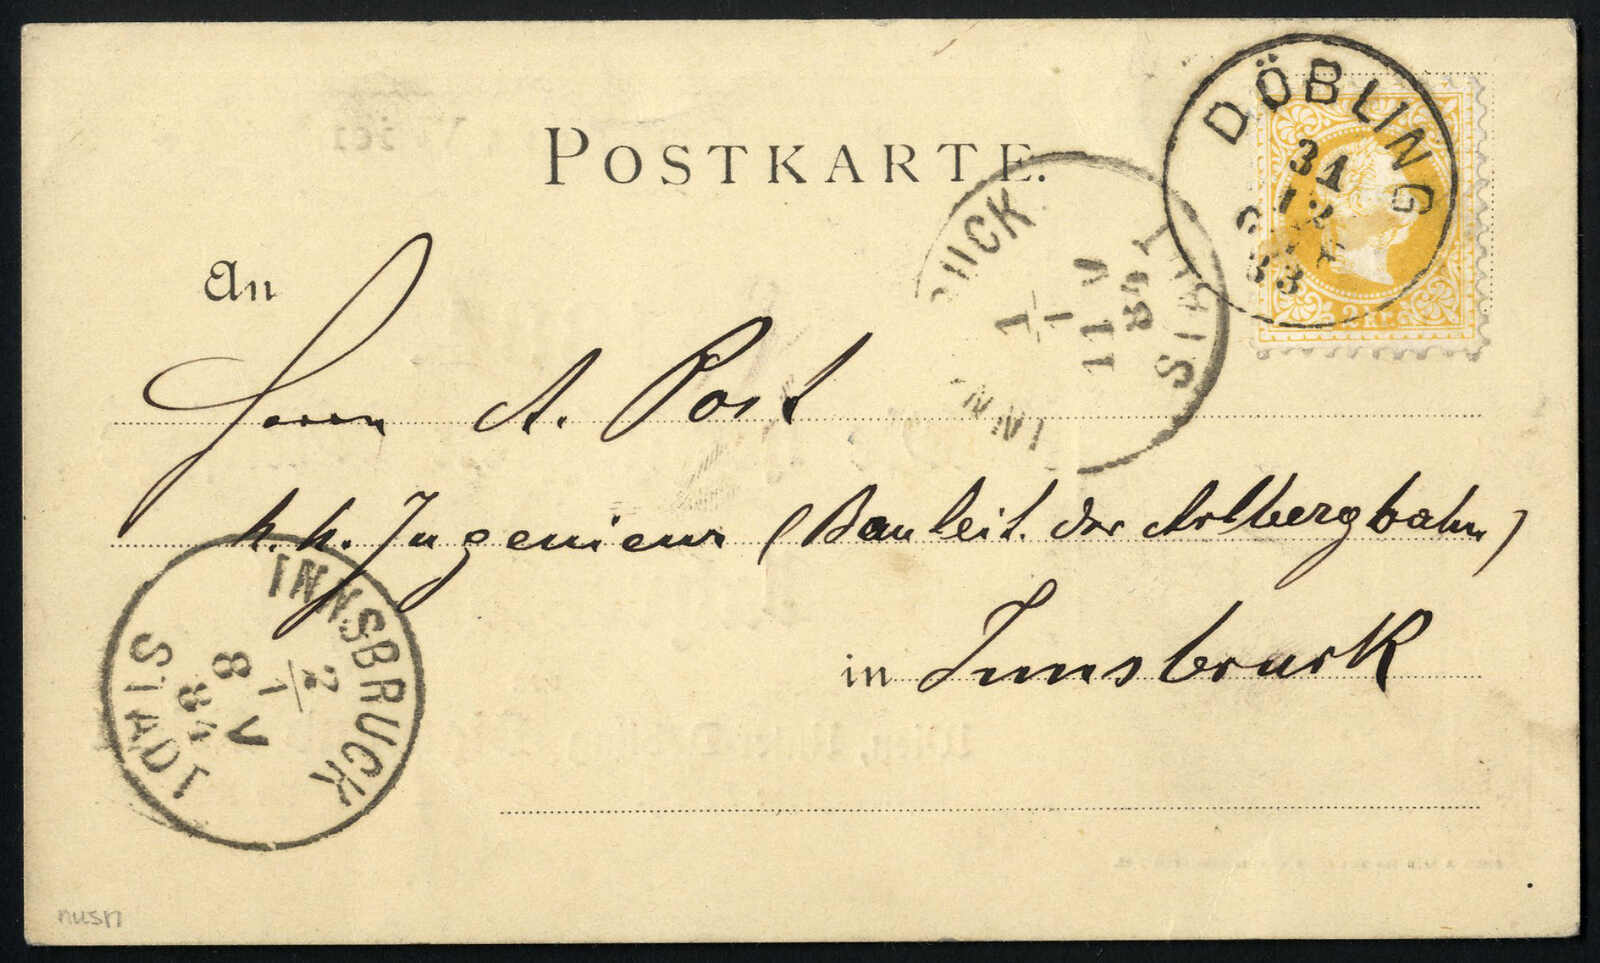 POSTKARTE.
DÖBLING
31
12
83
2 KR.
An
1
1
11 V
84
Herrn A. Post
k. k. Ingenieur (Bauleit. der Arlbergbahn)
in Innsbruck
INNSBRUCK
2
1
8 V
84
STADT